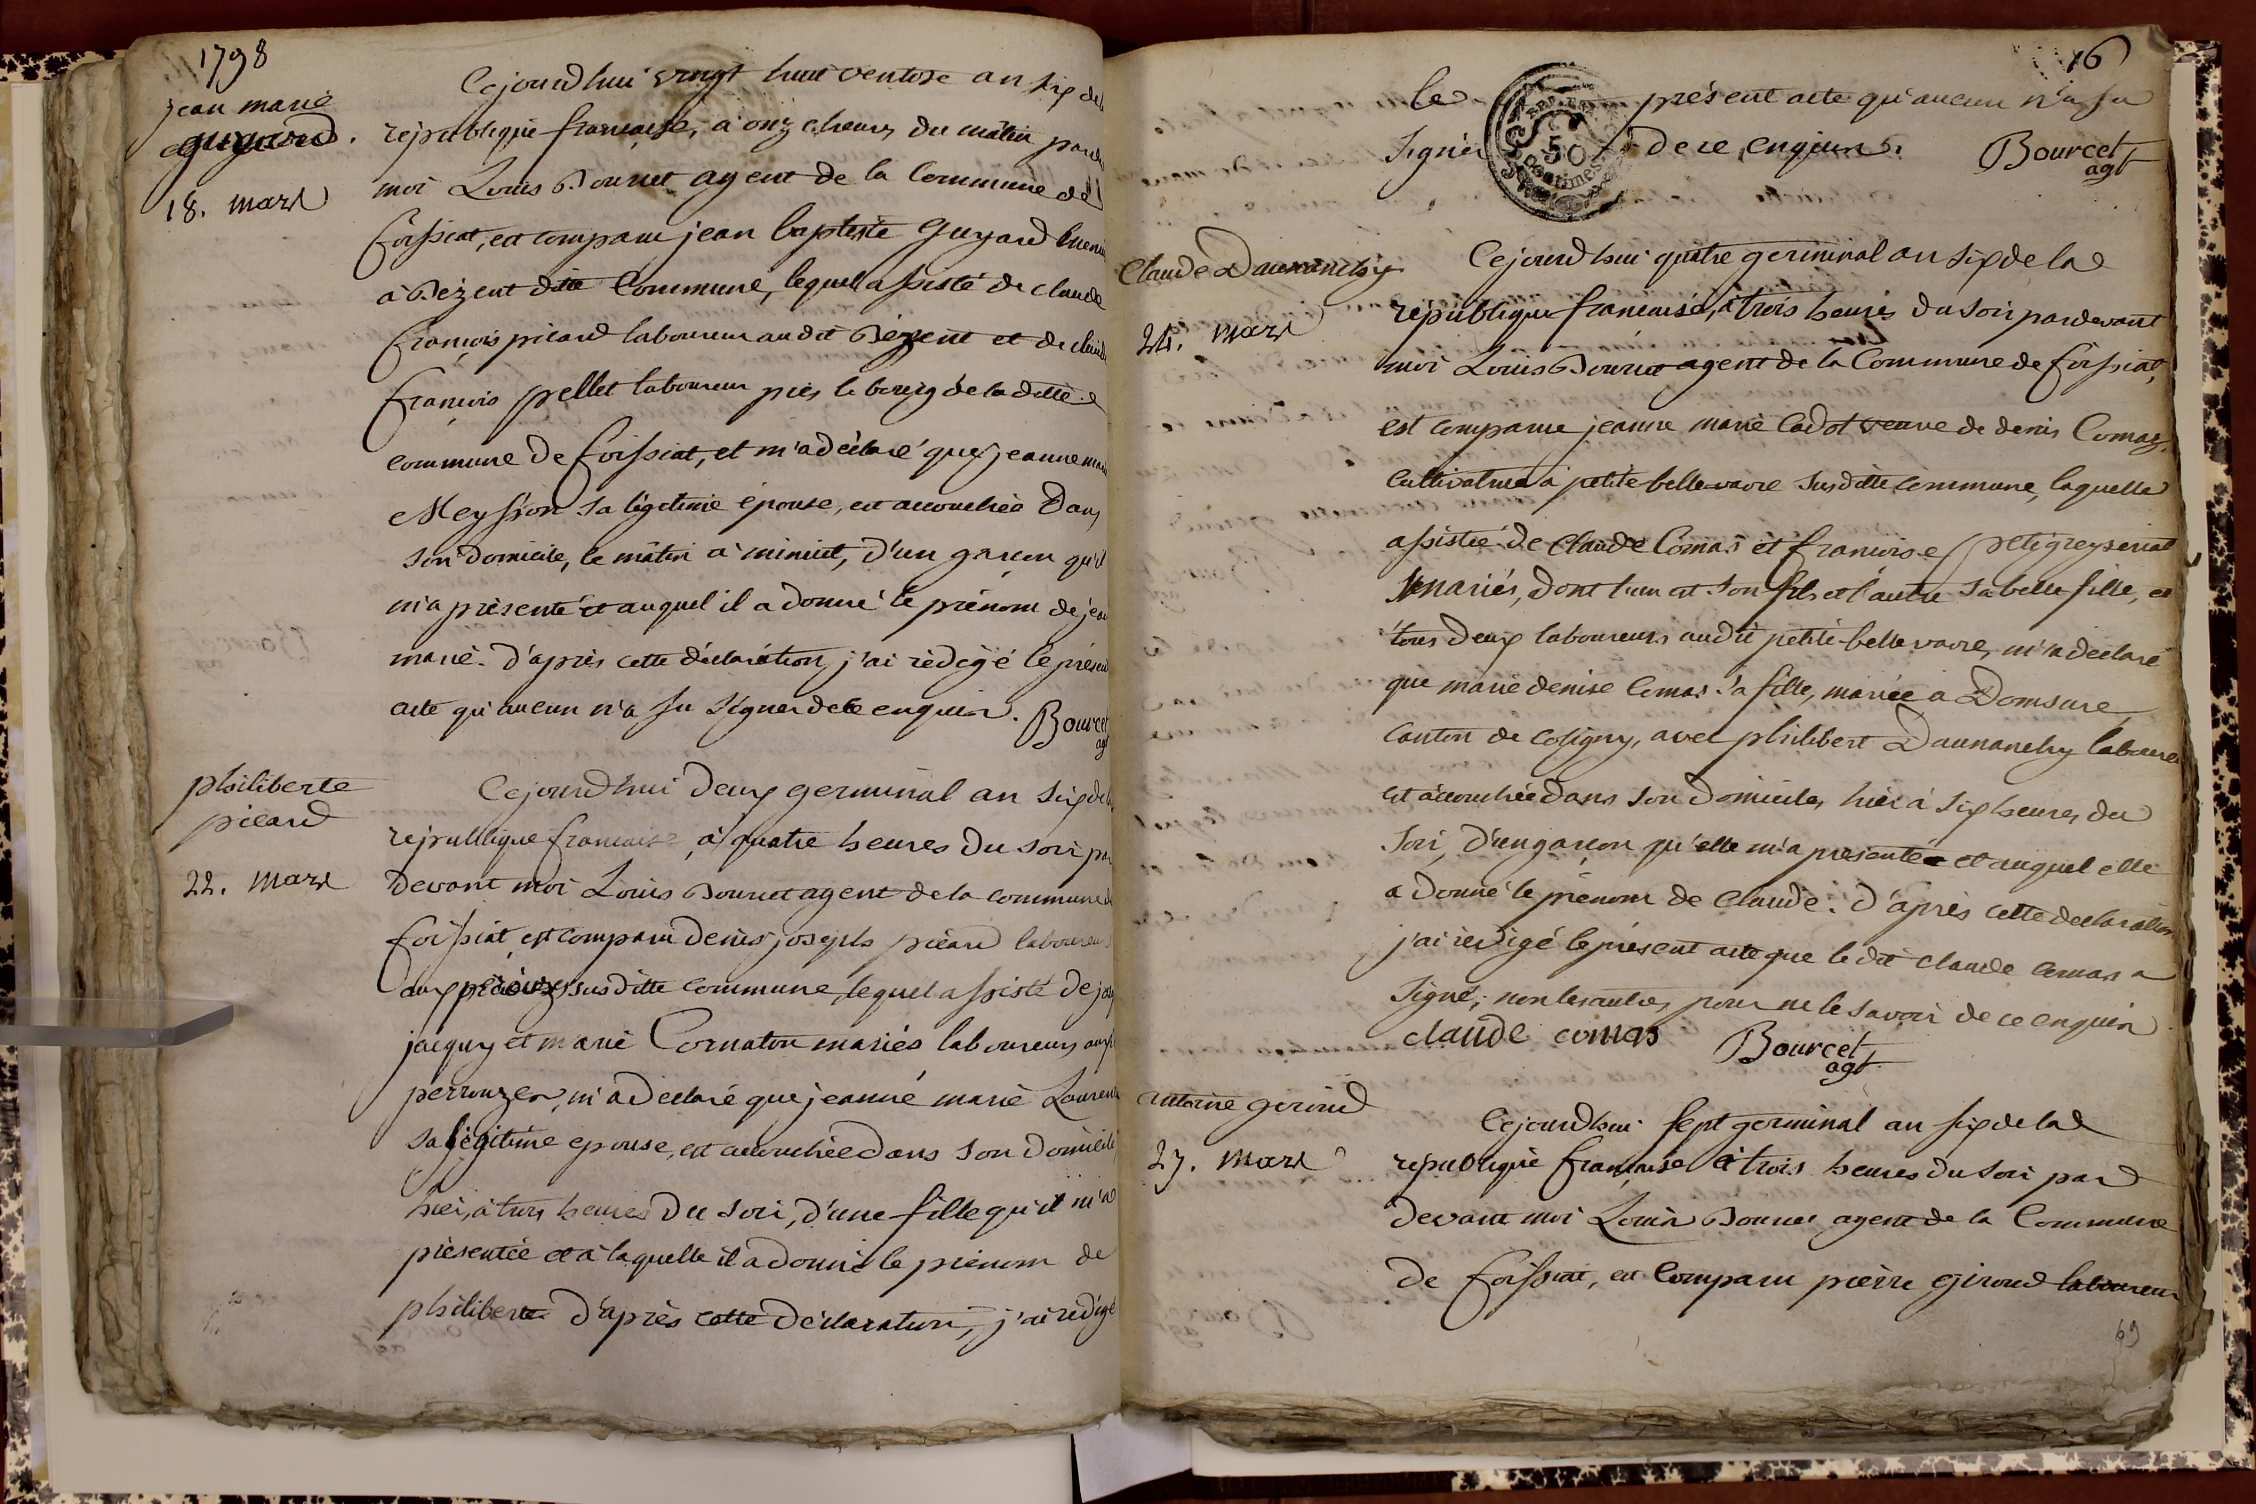 1798
jean marie
guyard.
18. mars
Cejourd'hui vingt huit ventose an six de la
republique francaise, à onze heures du matin par de
moi Louis Bourcet agent de la Commune de
foissiat, est comparu jean baptiste guyard
à Bézent ditte Commune, lequel assisté de claude
françois picard laboureur audit Bézent et de claude
françois pellet laboureur près le bourg de la ditte
commune de foissiat, et m'a déclaré que jeanne marie
Meyssion sa légitime épouse, est accouchée dans
son domicile, le matin à minuit, d'un garcon qu'il
m'a présenté et auquel il a donné le prénom de jean
marie. D'après cette déclaration, j'ai rédigé le présent
acte qu'aucun n'a su signer de ce enquis. Bourcet
agt
philiberte
picard
22. mars
Cejourd'hui deux germinal an six de la
republique francaise, à quatre heures du soir par
devant moi Louis Bourcet agent de la commune de
foissiat, est comparu denis joseph picard laboureur
aux susditte commune, lequel assisté de
jacquy et marie Cornaton mariés laboureurs aux
perrouzes, m'a déclaré que jeanne marie Laurent
sa légitime epouse, est accouchée dans son domicile
hier, à trois heures du soir, d'une fille qu'il m'a
présentée et à laquelle il a donné le prénom de
philiberte d'après cette déclaration, j'ai rédigé
76
le présent acte qu'aucun n'a su
signer de ce enquis. Bourcet
agt
50
Centimes
Claude Daunanchy
24. mars
Cejourd'hui quatre germinal an six de la
republique francaise, à trois heures du soir pardevant
moi Louis Bourcet agent de la Commune de foissiat,
est comparue jeanne marie Cadot veuve de denis Comas
cultivatrice à petite bellevavre susditte commune, laquelle
assistée de Claude Comas et francoise
mariés, dont l'un est son fils et l'autre sa belle fille, et
tous deux laboureurs audit petite bellevavre, m'a déclaré
que marie denise Comas sa fille, mariée à Domsure
canton de coligny, avec philibert Daunanchy laboureur
est accouchée dans son domicile, hier à six heures du
soir, d'un garcon qu'elle m'a présenté et auquel elle
a donné le prénom de Claude. D'après cette declaration
j'ai rédigé le présent acte que le dit claude comas a
signé, non les autres, pour ne le savoir de ce enquis
claude comas Bourcet
agt.
antoine giroud
27. mars
Cejourd'hui sept germinal an six de la
republique francaise à trois heures du soir par
devant moi Louis Bourcet agent de la Commune
de foissiat, est comparu pierre giroud laboureur
69